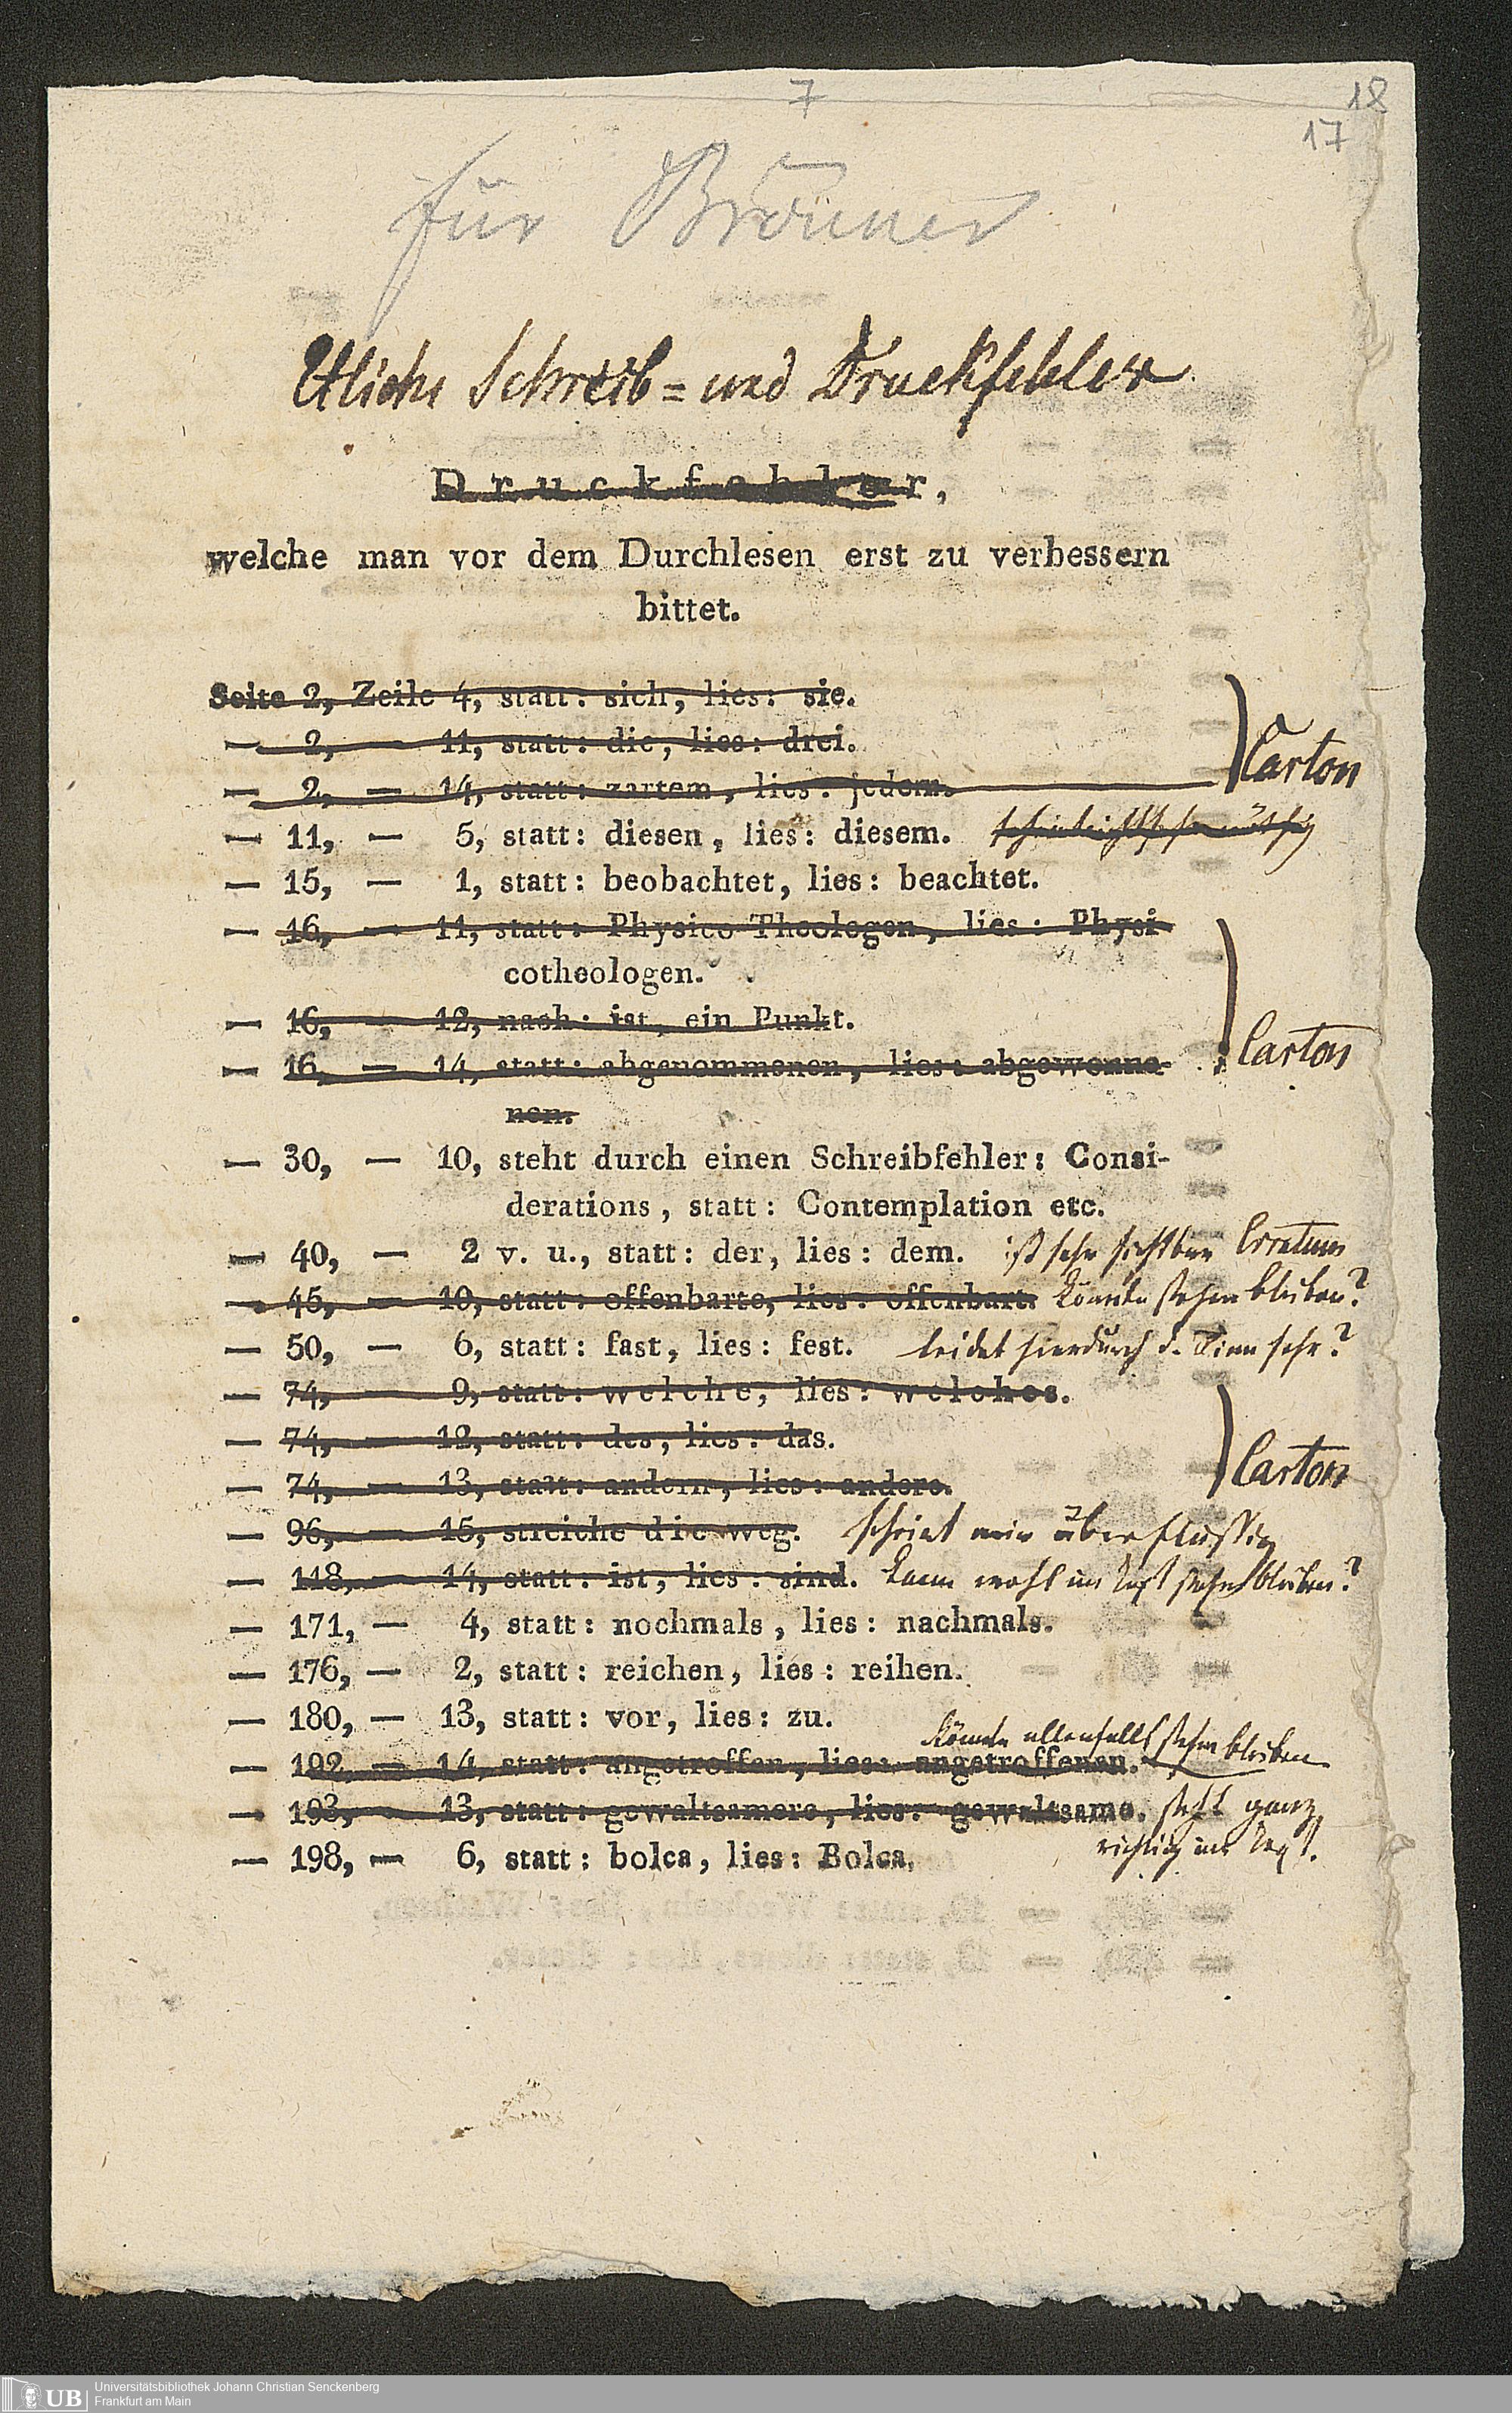 7
18
17
für Brönner
Etliche Schreib= und Druckfehler
Druckfehler,
welche man vor dem Durchlesen erst zu verbessern
bittet.
Seite 2, Zeile 4, statt: sich, lies: sie.
— 2, — 11, statt: die, lies: drei.
— 2, — 14, statt: zartem, lies: jedem.
Carton
— 11, — 5, statt: diesen, lies: diesem.
— 15, — 1, statt: beobachtet, lies: beachtet.
— 16, — 11, statt: Physico Theologen, lies: Physi-
cotheologen.
— 16, — 12, nach: ist, ein Punkt.
— 16, — 14, statt: abgenommenen, lies: abgewonne-
nen.
Carton
— 30, — 10, steht durch einen Schreibfehler: Consi-
derations, statt: Contemplation etc.
— 40, — 2 v. u., statt: der, lies: dem. ist sehr sichtbar Erratum
— 45, — 10, statt: offenbarte, lies: offenbart. könnte stehen bleiben?
— 50, — 6, statt: fast, lies: fest. leidet hierdurch d. Sinn sehr?
— 74, — 9, statt: welche, lies: welches.
— 74, — 12, statt: des, lies: das.
— 74, — 13, statt: andern, lies: andere.
Carton
— 96, — 15, streiche die weg. scheint mir überflüssig
— 118, — 14, statt: ist, lies: sind. kann wohl im Text stehen bleiben?
— 171, — 4, statt: nochmals, lies: nachmals.
— 176, — 2, statt: reichen, lies: reihen.
— 180, — 13, statt: vor, lies: zu.
könnte allenfalls stehen bleiben
— 192, — 14, statt: angetroffen, lies: angetroffenen.
— 193, — 13, statt: gewaltsamere, lies: gewaltsame. steht ganz
richtig im Text.
— 198, — 6, statt: bolca, lies: Bolca.
UB
Universitätsbibliothek Johann Christian Senckenberg
Frankfurt am Main